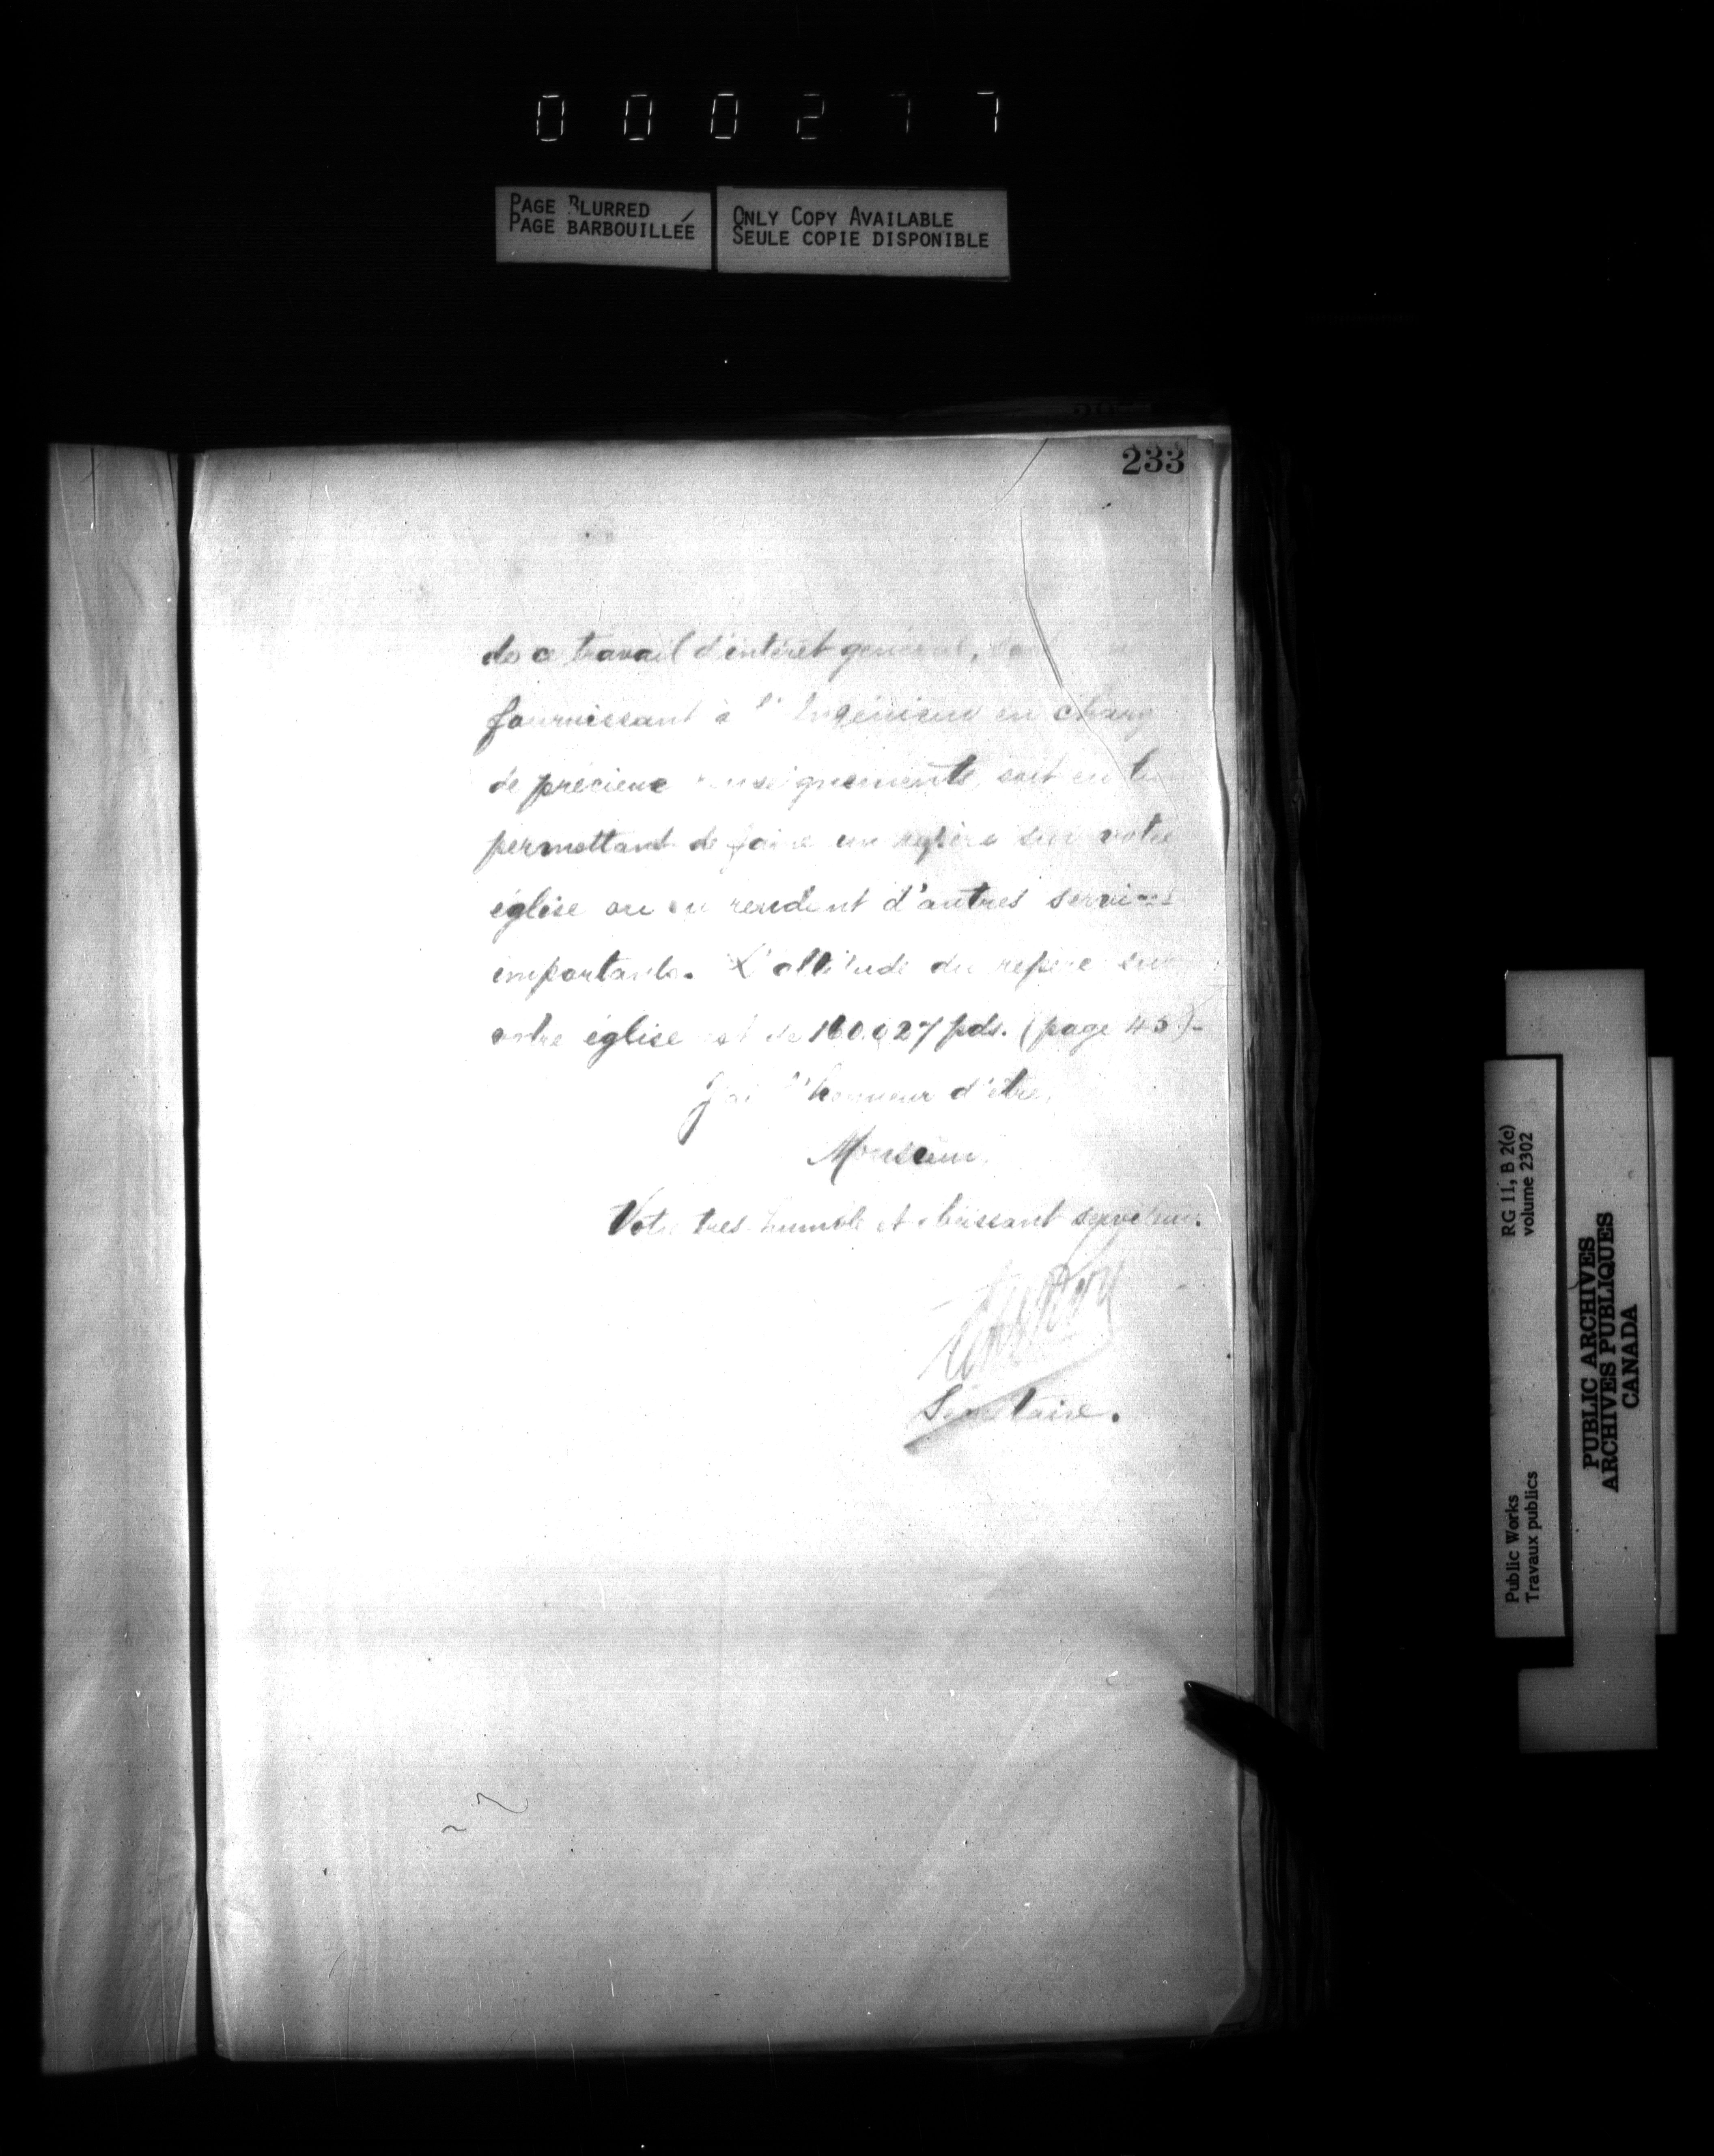 000277
PAGE BLURRED
PAGE BARBOUILLÉE
ONLY COPY AVAILABLE
SEULE COPIE DISPONIBLE
233
de ce travail d'intérêt général, soit
fournissant à l'Ingénieur en charge
de précieux renseignements, soit en lui
permettant de faire un repère sur votre
église ou en rendant d'autres services
importants. L'altitude du repère sur
votre église est de 160.027 pds. (page 45)-
J'ai l'honneur d'être,
Monsieur,
Votre très humble et obéissant serviteur.
Secrétaire.
RG 11, B 2(c)
volume 2302
Public Works
Travaux publics
PUBLIC ARCHIVES
ARCHIVES PUBLIQUES
CANADA